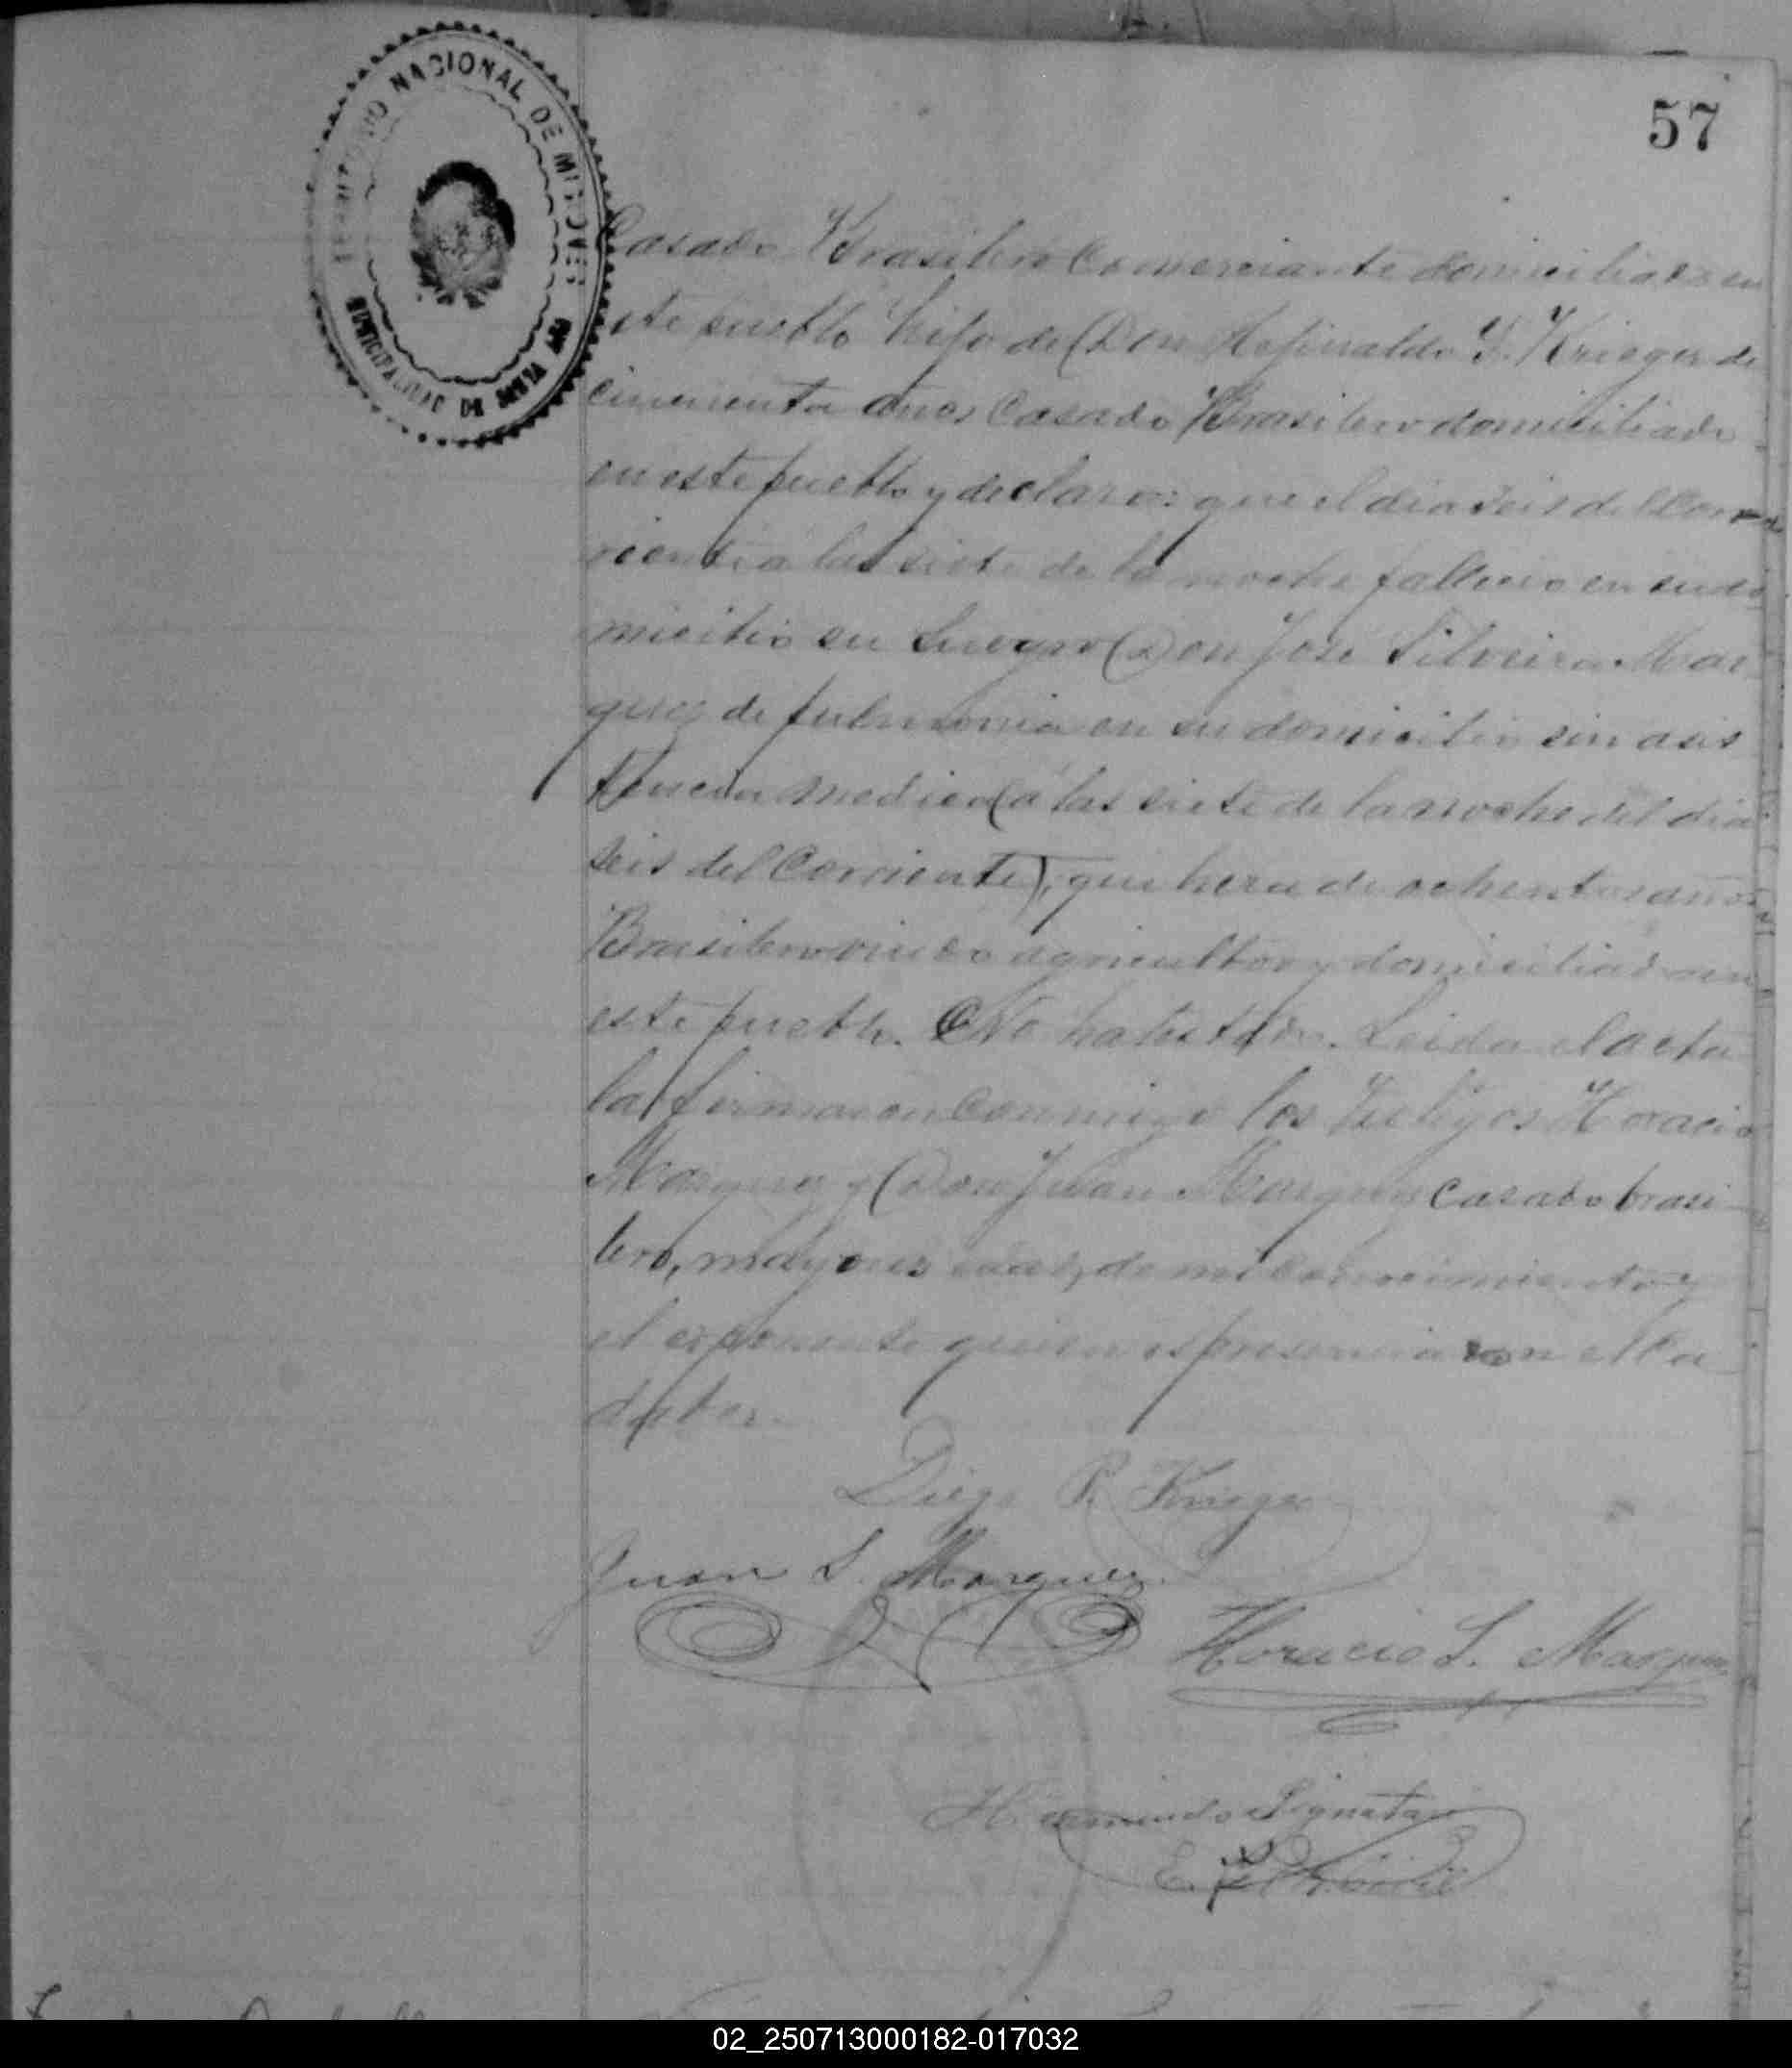 57
TERRITORIO NACIONAL DE MISIONES
MUNICIPALIDAD DE SANTA ANA
Casado Brasilero Comerciante domiciliado en
este pueblo hijo de Don Rejinaldo Krieger de
cincuenta años Casado Brasilero domiciliado
en este pueblo y declaro: que el dia seis del Cor
riente a las siete de la noche fallecio en su do
micilio su Suegro Don José Silveira Mar
quez de pulmonia en su domicilio sin asis
tencia medica (a las siete de la noche del dia
seis del Corriente), que hera de ochenta años
Brasilero viudo agricultor y domiciliado en
este pueblo. No ha testado. Leida el acta
la firmaron conmigo los testigos Horacio
Marquez y Don Juan Marquez Casado brasi-
lero, mayores edad, de mi Conocimiento y
el exponente quienes presenciaron el Ca
daber.
Diego R. Krieger
Juan S. Marquez.
Horacio S. Marquez
Hermindo
02_250713000182-017032